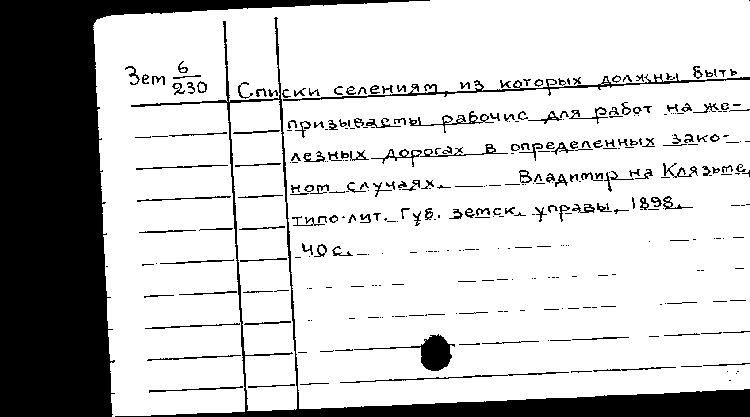 Зем 6/230
Списки селениям, из которых должны быть
призываемы рабочие для работ на же-
лезных дорогах в определенных зако-
ном случаях. Владимир на Клязьме,
типо-лит. Губ. земск. управы, 1898.
40 с.